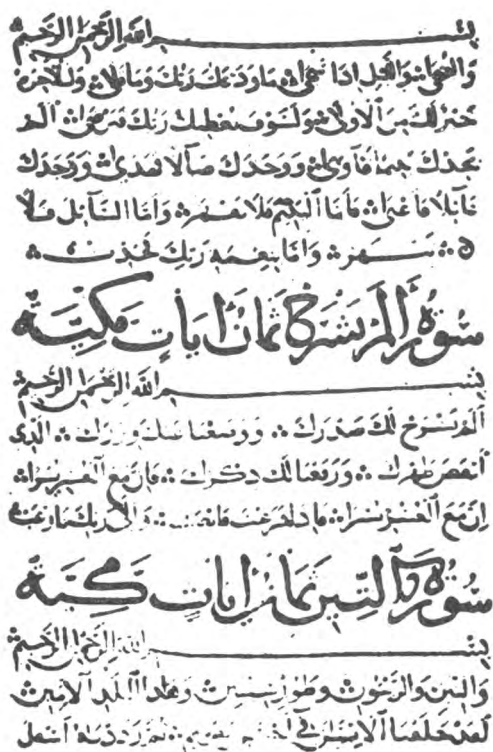 بسم الله الرحمن الرحيم
والضحى والليل اذا سجى ما ودعك ربك وما قلى وللآخرة
خير لك من الاولى ولسوف يعطيك ربك فترضى الم
يجدك يتيما فآوى ووجدك ضآلا فهدى ووجدك
عآئلا فاغنى فاما اليتيم فلا تقهر واما السآئل فلا
تنهر واما بنعمة ربك فحدث
سورة الم نشرح ثمان ايات مكية
بسم الله الرحمن الرحيم
الم نشرح لك صدرك ووضعنا عنك وزرك الذى
انقض ظهرك ورفعنا لك ذكرك فان مع العسر يسرا
ان مع العسر يسرا فاذا فرغت فانصب والى ربك فارغب
سورة والتين ثمان ايات مكية
بسم الله الرحمن الرحيم
والتين والزيتون وطور سينين وهذا البلد الامين
لقد خلقنا الانسان في احسن تقويم ثم رددناه اسفل